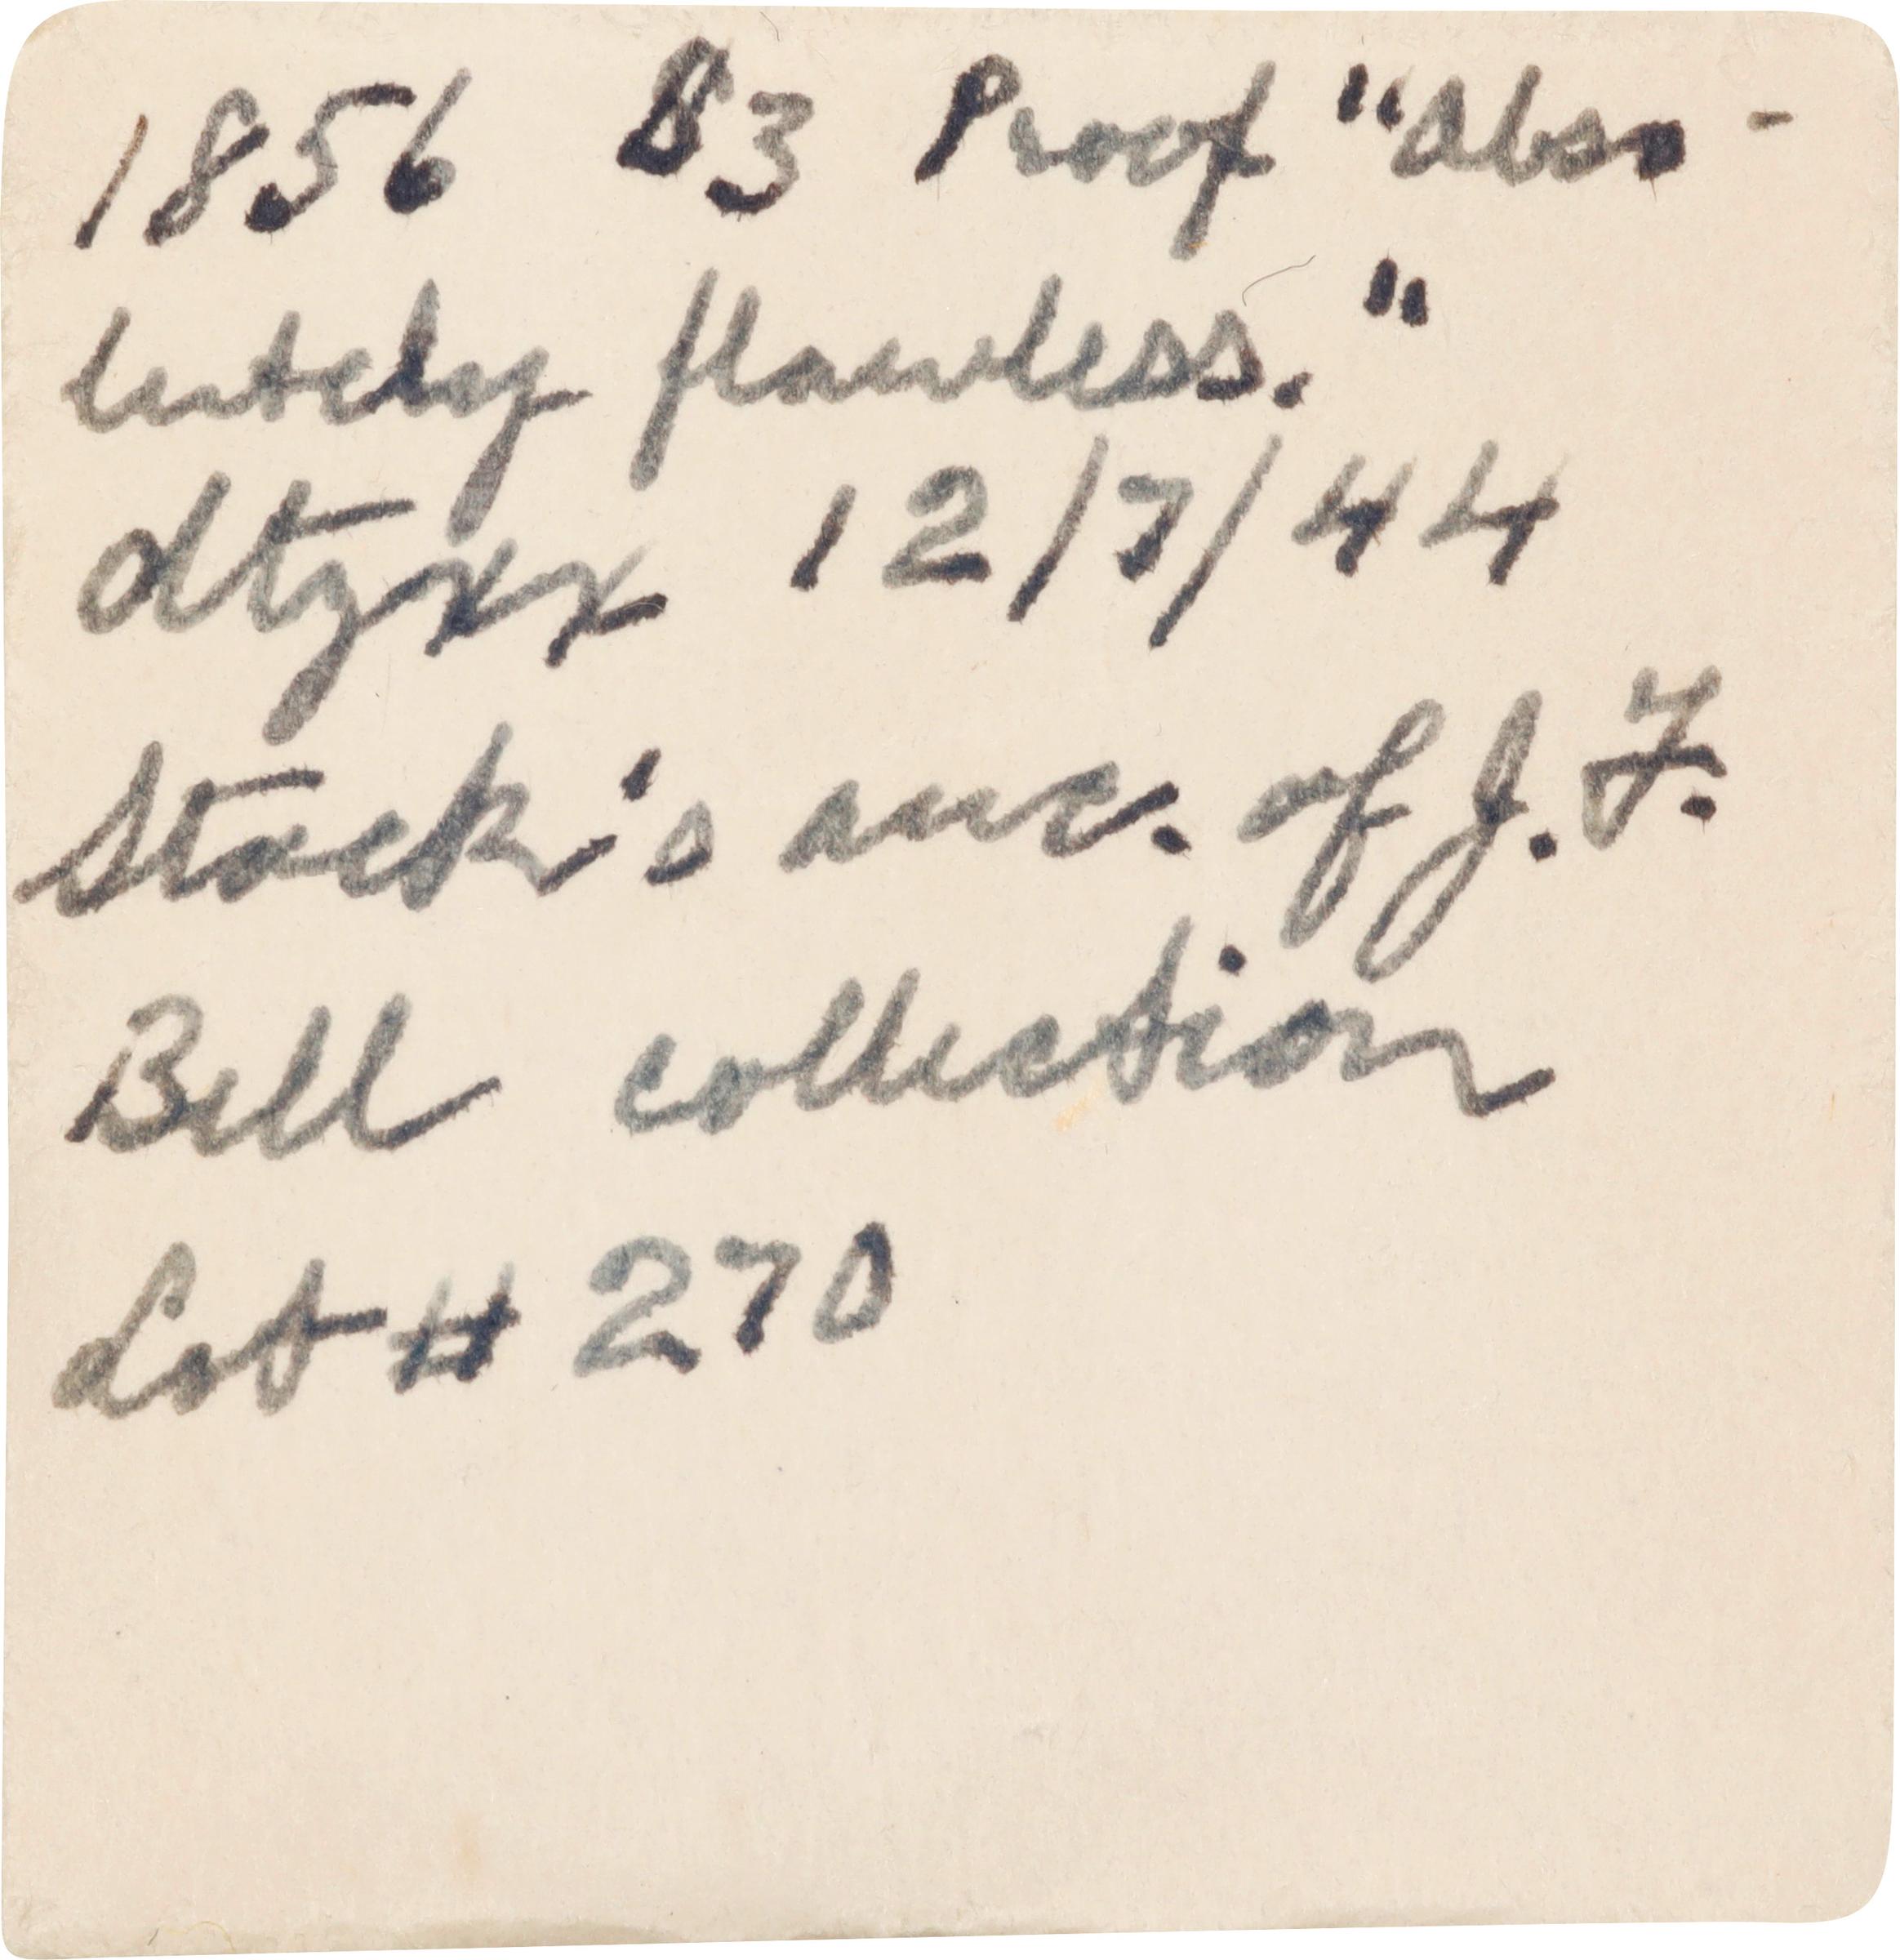 1856 $3 Proof "abso-
lutely flawless."
dtyxx 12/7/44
Stack's auc. of J. F.
Bell collection
Lot # 270